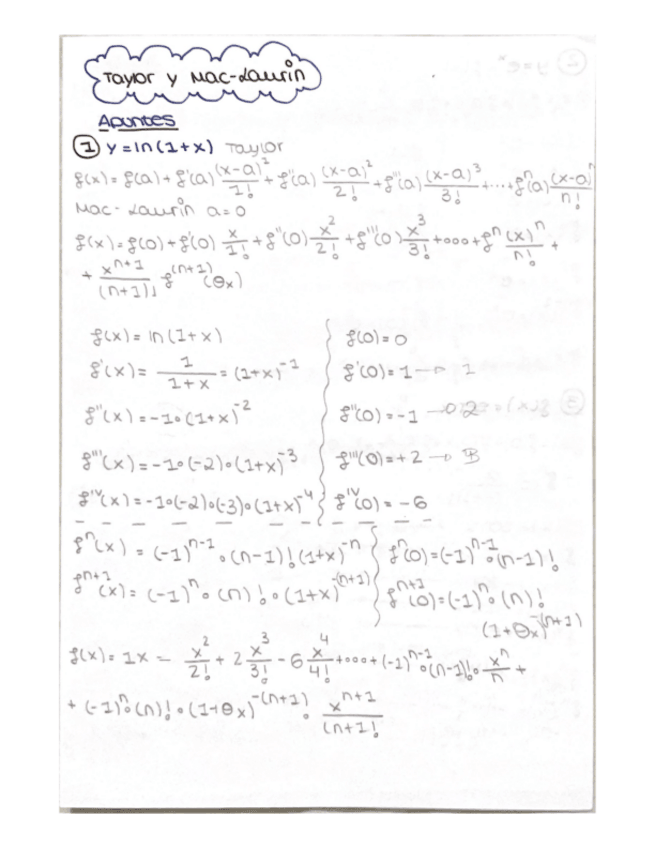 Taylor y Mac-Laurin
Apuntes
① y = ln(1+x) Taylor
f(x) = f(a) + f'(a) (x-a)²/1! + f''(a) (x-a)²/2! + f'''(a) (x-a)³/3! + ... f^n(a) (x-a)^n/n!
Mac-Laurin a=0
f(x) = f(0) + f'(0) x/1! + f''(0) x²/2! + f'''(0) x³/3! + ... + f^n (x)^n/n! +
+ x^(n+1)/(n+1)! f^(n+1) (θx)
f(x) = ln(1+x) f(0) = 0
f'(x) = 1/(1+x) = (1+x)^-1 f'(0) = 1 → 1
f''(x) = -1·(1+x)^-2 f''(0) = -1 → 2
f'''(x) = -1·(-2)·(1+x)^-3 f'''(0) = +2 → 3
f^IV(x) = -1·(-2)·(-3)·(1+x)^-4 f^IV(0) = -6
f^n(x) = (-1)^(n-1)·(n-1)!(1+x)^-n f^n(0) = (-1)^(n-1)·(n-1)!
f^(n+1)(x) = (-1)^n·(n)!·(1+x)^-(n+1) f^(n+1)(0) = (-1)^n·(n)!
(1+θx)^-(n+1)
f(x) = 1x - x²/2! + 2 x³/3! - 6 x⁴/4! + ... + (-1)^(n-1)·(n-1)!· x^n/n +
+ (-1)^n·(n)!·(1+θx)^-(n+1)· x^(n+1)/(n+1!